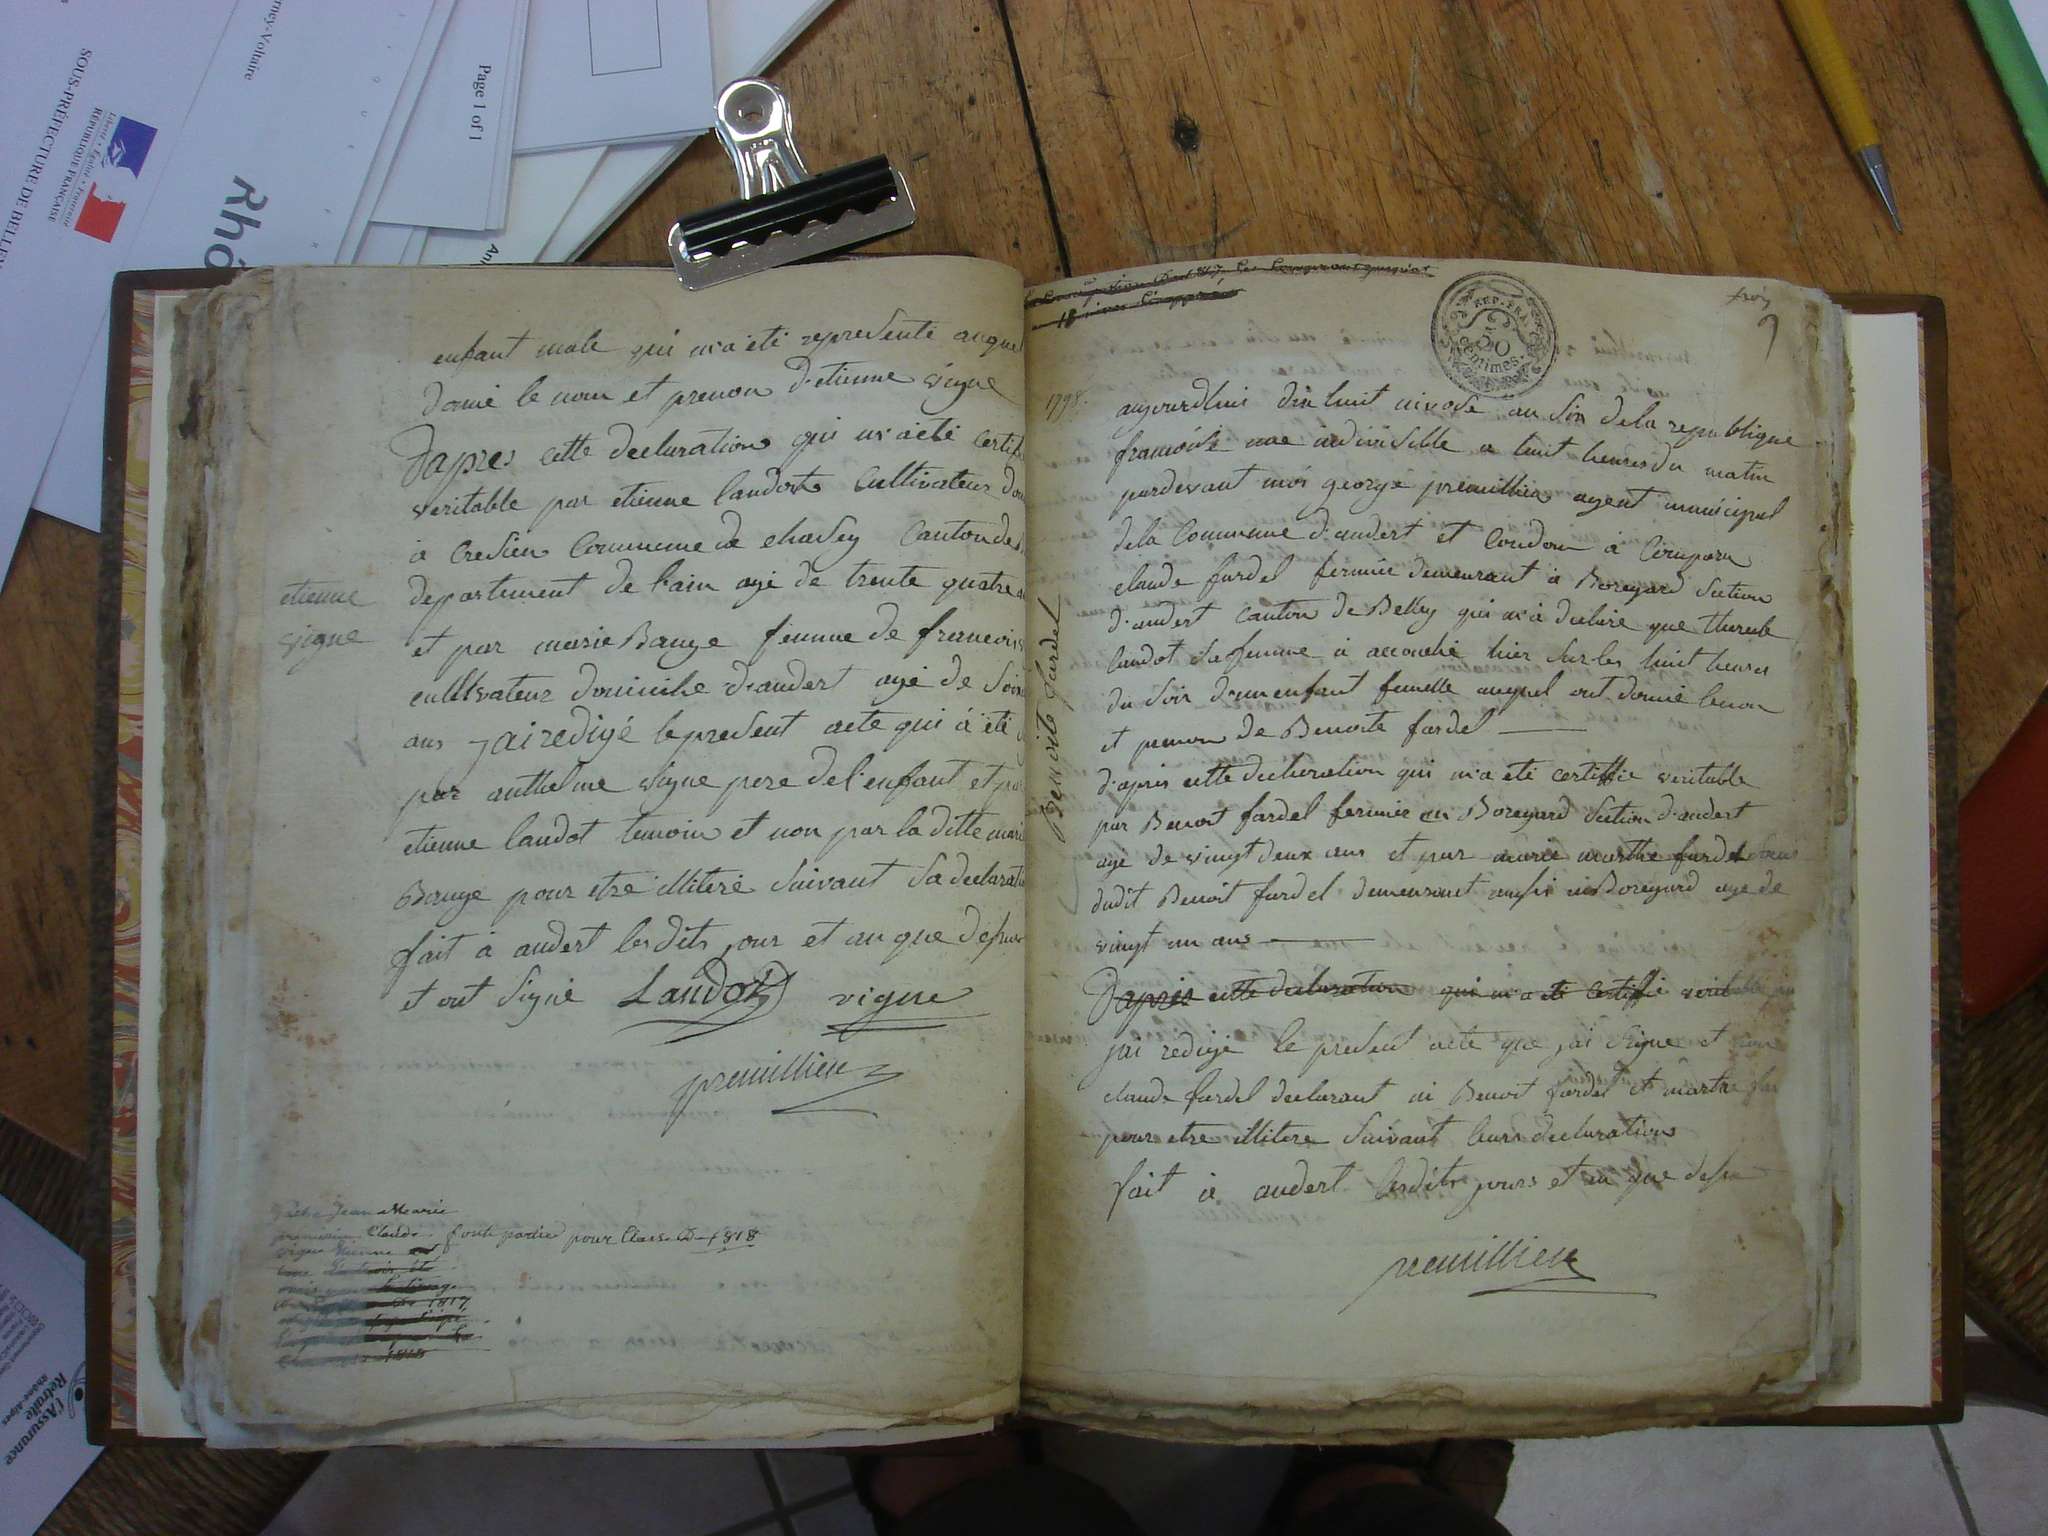 SOUS-PRÉFECTURE DE BELLEY
Liberté • Égalité • Fraternité
RÉPUBLIQUE FRANÇAISE
rney-Voltaire
Rhô
Page 1 of 1
l'Assurance
Retraite
Rhône-Alpes
enfant male qui m'a été representé auquel
donné le nom et prenon d'etienne vigne
Dapres cette declaration qui m'a été certif
veritable par etienne landot cultivateur
a Cresieu Commune de chasey Canton de
departement de l'ain agé de trente quatre
et par marie Bauge femme de francois
cultivateur domicilie d'andert agé de
ans jai redigé le present acte qui a été
par anthelme vigne pere de l'enfant et par
etienne landot temoin et non par la ditte
Bauge pour etre illiteré suivant sa declarati
fait a andert les dits jour et an que dessus
et ont signé Landot vigne
premillieu
etienne
vigne
Jean Marie
Claude font partie pour Classe de 1818
vigne Etienne
1817
1818
REP. FRA.
50
centimes.
trois
1798.
aujourdhui dix huit nivose an six de la republique
francoise une indivisible a huit heures du matin
pardevant moi george premillieu agent municipal
de la Commune d'andert et Condon a Comparu
claude fardel fermier demeurant a Boregard Section
d'andert canton de Belley qui m'a declaré que
landot sa femme a accouché hier sur les huit heures
du soir d'un enfant femelle auquel ont donné le nom
et prenon de Benoite fardel
d'apres cette declaration qui m'a été certiffié veritable
par Benoit fardel fermier en Boregard Section d'andert
agé de vingt deux ans et par marie marthe fardel
dudit Benoit fardel demeurant aussi en Boregard agé de
vingt un ans
Dapres cette declaration qui m'a été certiffié veritable
jai redigé le present acte que jai signé et non
claude fardel declarant ni Benoit fardel et marthe
pour etre illiteré suivant leurs declaration
fait a andert lesdits jours et an que dessus
premillieu
Benoite fardel